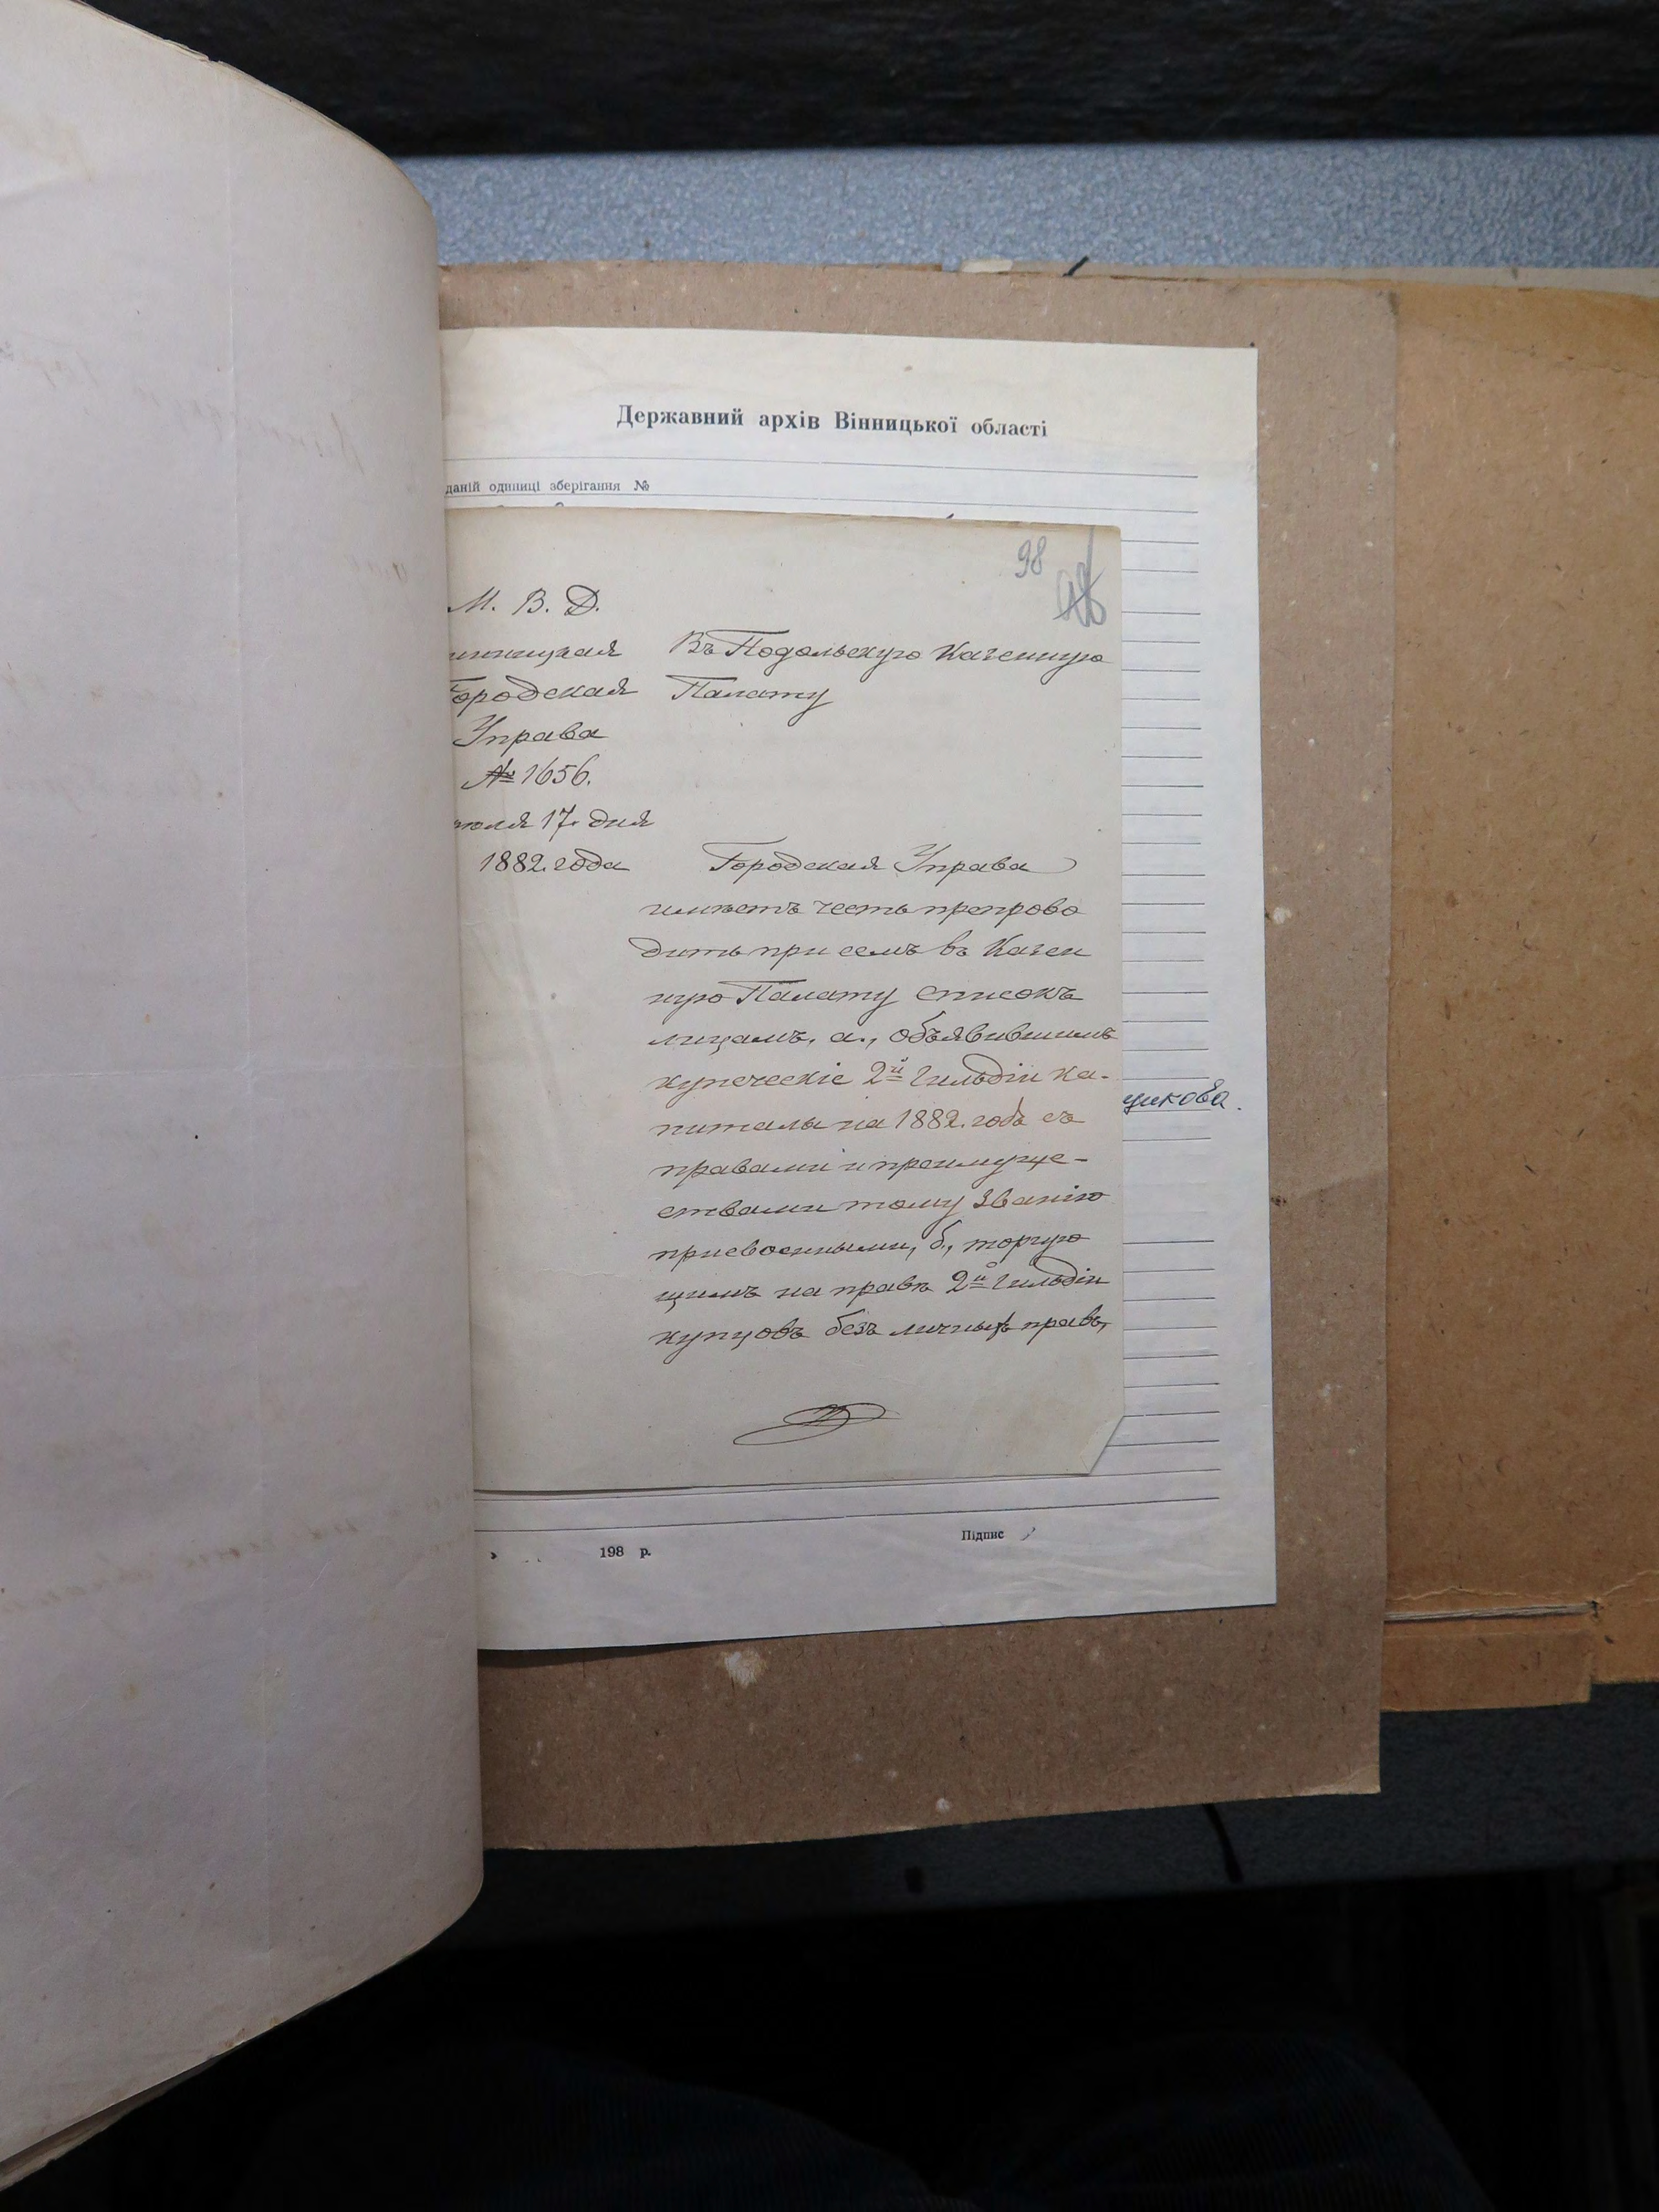 Державний архів Вінницької області
даній одиниці зберігання №
98
М. В. Д.
инницкая
Городская
Управа
№ 1656.
юля 17. дня
1882. года
Въ Подольскую Казенную
Палату
Городская Управа
имѣетъ честь препрово
дить при семъ въ Казен
ную Палату списокъ
лицамъ, а., объявившимъ
купеческіе 2й Гильдіи ка-
питалы на 1882. годъ съ
правами и преимуще-
ствами тому званію
присвоенными, б., торгую
щимъ на правѣ 2й Гильдіи
купцовъ безъ личныхъ правъ,
щикова.
198 р.
Підпис